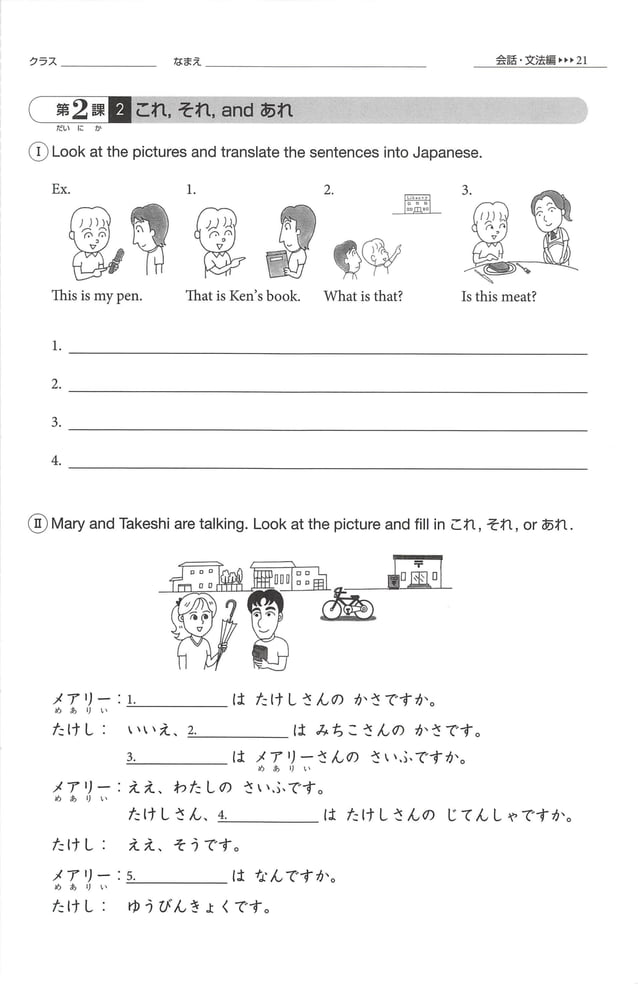 クラス なまえ 会話・文法編▶▶▶21
第2課 2 これ, それ, and あれ
だい に か
Ⅰ Look at the pictures and translate the sentences into Japanese.
Ex. 1. 2. 3.
Library
This is my pen. That is Ken's book. What is that? Is this meat?
1.
2.
3.
4.
Ⅱ Mary and Takeshi are talking. Look at the picture and fill in これ, それ, or あれ.
〒
メアリー：1. は たけしさんの かさですか。
めありい
たけし： いいえ、2. は みちこさんの かさです。
3. は メアリーさんの さいふですか。
めありい
メアリー：ええ、わたしの さいふです。
めありい
たけしさん、4. は たけしさんの じてんしゃですか。
たけし： ええ、そうです。
メアリー：5. は なんですか。
めありい
たけし： ゆうびんきょくです。